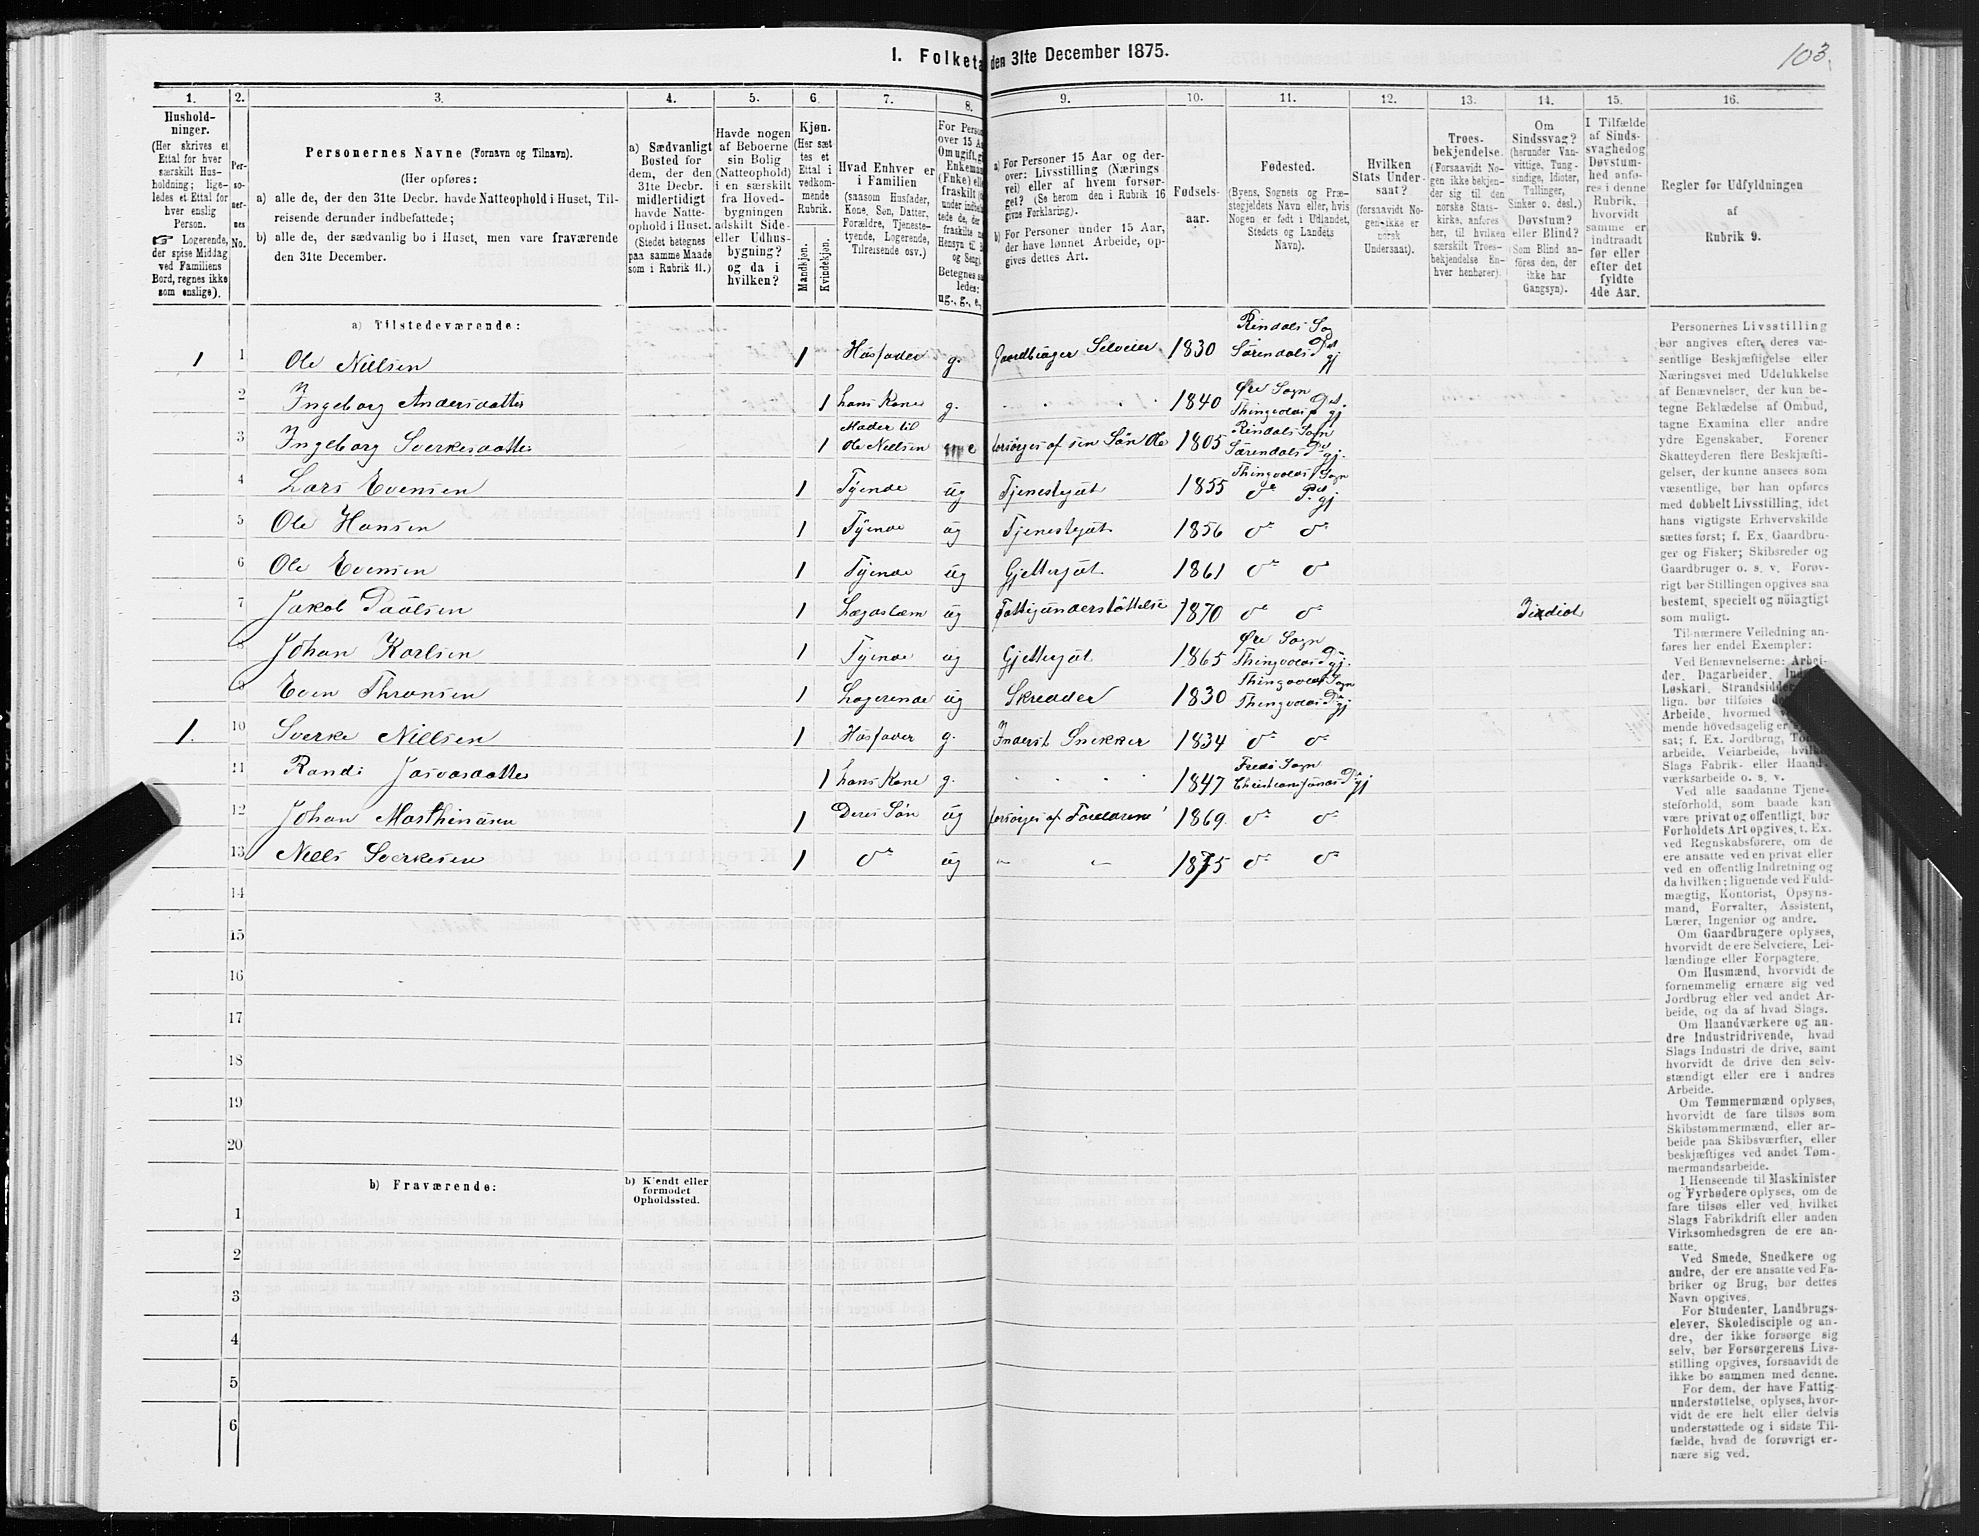 I. Folketæ den 31te December 1875.
103.
1. 2. 3. 4. 5. 6. 7. 8. 9. 10. 11. 12. 13. 14. 15. 16.
Hushold-
ninger.
(Her skrives et
Ettal for hver
særskilt Hus-
holdning; lige-
ledes et Ettal for
hver enslig
Person.
☞ Logerende,
der spise Middag
ved Familiens
Bord, regnes ikke
som enslige).
Per-
so-
ner-
nes
No.
Personernes Navne (Fornavn og Tilnavn).
(Her opføres:
a) alle de, der den 31te Decbr. havde Natteophold i Huset, Til-
reisende derunder indbefattede;
b) alle de, der sædvanlig bo i Huset, men vare fraværende
den 31te December.
a) Sædvanligt
Bosted for
dem, der den
31te Decbr.
midlertidigt
havde Natte-
ophold i Huset.
(Stedet betegnes
paa samme Maade
som i Rubrik 11.)
Havde nogen
af Beboerne
sin Bolig
(Natteophold)
i en særskilt
fra Hoved-
bygningen
adskilt Side-
eller Udhus-
bygning?
og da i
hvilken?
Kjøn.
(Her sæt
tes et
Ettal i
vedkom-
mende
Rubrik.
Mandkjøn.
Kvindekjøn.
Hvad Enhver er
i Familien
(saasom Husfader,
Kone, Søn, Datter,
Forældre, Tjeneste-
tyende, Logerende,
Tilreisende osv.)
For Person
over 15 A
Om ugift, g
Enkeman
(Enke) ell
fraskilt
ug., g., e.,
a) For Personer 15 Aar og der-
over: Livsstilling (Nærings-
vei) eller af hvem forsør-
get? (Se herom den i Rubrik 16
givne Forklaring).
b) For Personer under 15 Aar,
der have lønnet Arbeide, op-
gives dettes Art.
Fødsels-
aar.
Fødested.
(Byens, Sognets og Præ-
stegjeldets Navn eller, hvis
Nogen er født i Udlandet,
Stedets og Landets
Navn).
Hvilken
Stats Under-
saat?
(forsaavidt No-
gen ikke er
norsk
Undersaat).
Troes-
bekjendelse.
(Forsaavidt No-
gen ikke bekjen-
der sig til den
norske Stats-
kirke, anføres
her, til hvilken
særskilt Troes-
bekjendelse En-
hver henhører).
Om
Sindssvag?
(herunder Van-
vittige, Tung-
sindige, Idioter,
Tullinger,
Sinker o. desl.)
Døvstum?
eller Blind?
(Som Blind an-
føres den, der
ikke har
Gangsyn).
I Tilfælde
af Sinds-
svaghed og
Døvstum-
hed anfø-
res i denne
Rubrik,
hvorvidt
samme er
indtraadt
før eller
efter det
fyldte
4de Aar.
Regler for Udfyldningen
af
Rubrik 9.
a) Tilstedeværende:
1 1 Ole Nielsen 1 Husfader g. Gaardbruger Selveier 1830 Rindals Sog Surendals Pd gj
2 Ingeborg Andersdatter 1 hans Kone g. " " 1840 Øre Sogn Thingvolds Pd. gj
3 Ingeborg Sverkesdatter 1 Moder til Ole Nielsen e forsørges af sin Søn Ole 1805 Rindals Sogn Surendals Pd gj.
4 Lars Evensen 1 Tyende ug Tjenestegut 1855 Thingvolds Sogn do Pd. gj
5 Ole Hansen 1 Tyende ug Tjenestegut 1856 do do
6 Ole Evensen 1 Tyende ug Gjettergut 1861 do do
7 Jakob Paulsen 1 Lægdslem ug Fattigunderstøttelse 1870 do do Idiot
8 Johan Karlsen 1 Tyende ug Gjettergut 1865 Øre Sogn Thingvolds Pd gj.
9 Even Thronsen 1 Logerende ug Skredder 1830 Thingvolds Sogn Thingvolds Pd gj
1. 10 Sverke Nielsen 1 Husfader g. Inderst Snekker 1834 do do
11 Randi 1 hans Kone g. " " 1847 Fredø Sogn Christiansunds Pd gj
12 Johan Mathinusen 1 Deres Søn ug forsørges af Forældrene 1869. do do
13 Niels Sverkesen 1 do ug " " 1875 do do
14
15
16
17
18
19
20
b) Fraværende:
b) Kjendt eller
formodet
Opholdssted.
1
2
3
4
5
6
Personernes Livsstilling
bør angives efter deres væ-
sentlige Beskjæftigelse eller
Næringsvei med Udelukkelse
af Benævnelser, der kun be-
tegne Beklædelse af Ombud,
tagne Examina eller andre
ydre Egenskaber. Forener
Skatteyderen flere Beskjæfti-
gelser, der kunne ansees som
væsentlige, bør han opføres
med dobbelt Livsstilling, idet
hans vigtigste Erhvervskilde
sættes først; f. Ex. Gaardbru-
ger og Fisker; Skibsreder og
Gaardbruger o. s. v. Forøv-
rigt bør Stillingen opgives saa
bestemt, specielt og nöiagtigt
som muligt.
Til nærmere Veiledning an-
føres her endel Exempler:
Ved Benævnelserne: Arbei-
der, Dagarbeider,
Løskarl, Strandsidder
lign. bør tilføies
Arbeide, hvormed
mende hovedsagelig er
sat; f. Ex. Jordbrug,
arbeide, Veiarbeide,
Slags Fabrik- eller Haand
værksarbeide o. s. v.
Ved alle saadanne Tjene-
steforhold, som baade kan
være privat og offentligt, bør
Forholdets Art opgives, t. Ex.
ved Regnskabsførere, om de
ere ansatte ved en privat eller
ved en offentlig Indretning og
da hvilken; lignende ved Fuld-
mægtig, Kontorist, Opsyns-
mand, Forvalter, Assistent,
Lærer, Ingeniør og andre.
Om Gaardbrugere oplyses,
hvorvidt de ere Selveiere, Lei-
lændinge eller Forpagtere.
Om Husmænd, hvorvidt de
fornemmelig ernære sig ved
Jordbrug eller ved andet Ar-
beide, og da af hvad Slags.
Om Haandværkere og an-
dre Industridrivende, hvad
Slags Industri de drive, samt
hvorvidt de drive den selv-
stændigt eller ere i andres
Arbeide.
Om Tømmermænd oplyses,
hvorvidt de fare tilsøs som
Skibstømmermænd, eller ar-
beide paa Skibsværfter, eller
beskjæftiges ved andet Tøm-
mermandsarbeide.
I Henseende til Maskinister
og Fyrbødere oplyses, om de
fare tilsøs eller ved hvilket
Slags Fabrikdrift eller anden
Virksomhedsgren de ere an-
satte.
Ved Smede, Snedkere og
andre, der ere ansatte ved Fa-
briker og Brug, bør dettes
Navn opgives.
For Studenter, Landbrugs-
elever, Skoledisciple og an-
dre, der ikke forsørge sig
selv, bør Forsørgerens Livs-
stilling opgives, forsaavidt de
ikke bo sammen med denne.
For dem, der have Fattig-
understøttelse, oplyses, hvor-
vidt de ere helt eller delvis
understøttede og i sidste Til-
fælde, hvad de forøvrigt er-
nære sig ved.